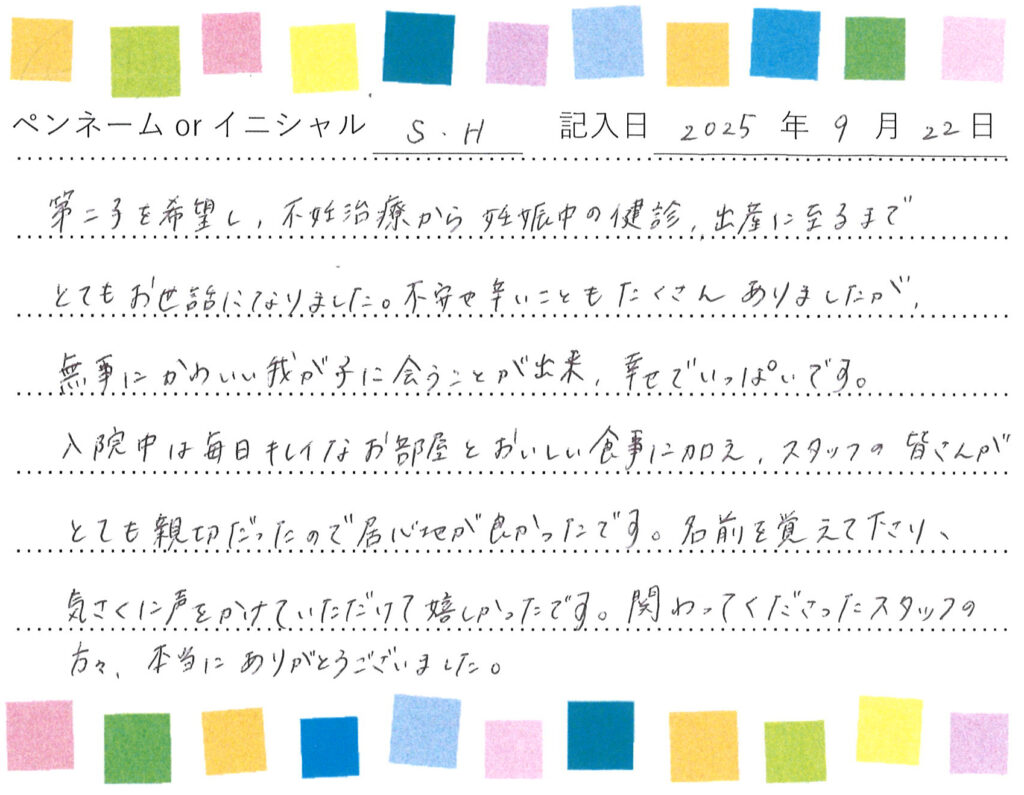 ペンネーム or イニシャル S.H 記入日 2025年9月22日
第二子を希望し、不妊治療から妊娠中の健診、出産に至るまで
とてもお世話になりました。不安や辛いこともたくさんありましたが、
無事にかわいい我が子に会うことが出来、幸せでいっぱいです。
入院中は毎日キレイなお部屋とおいしい食事に加え、スタッフの皆さんが
とても親切だったので居心地が良かったです。名前を覚えて下さり、
気さくに声をかけていただけて嬉しかったです。関わってくださったスタッフの
方々、本当にありがとうございました。